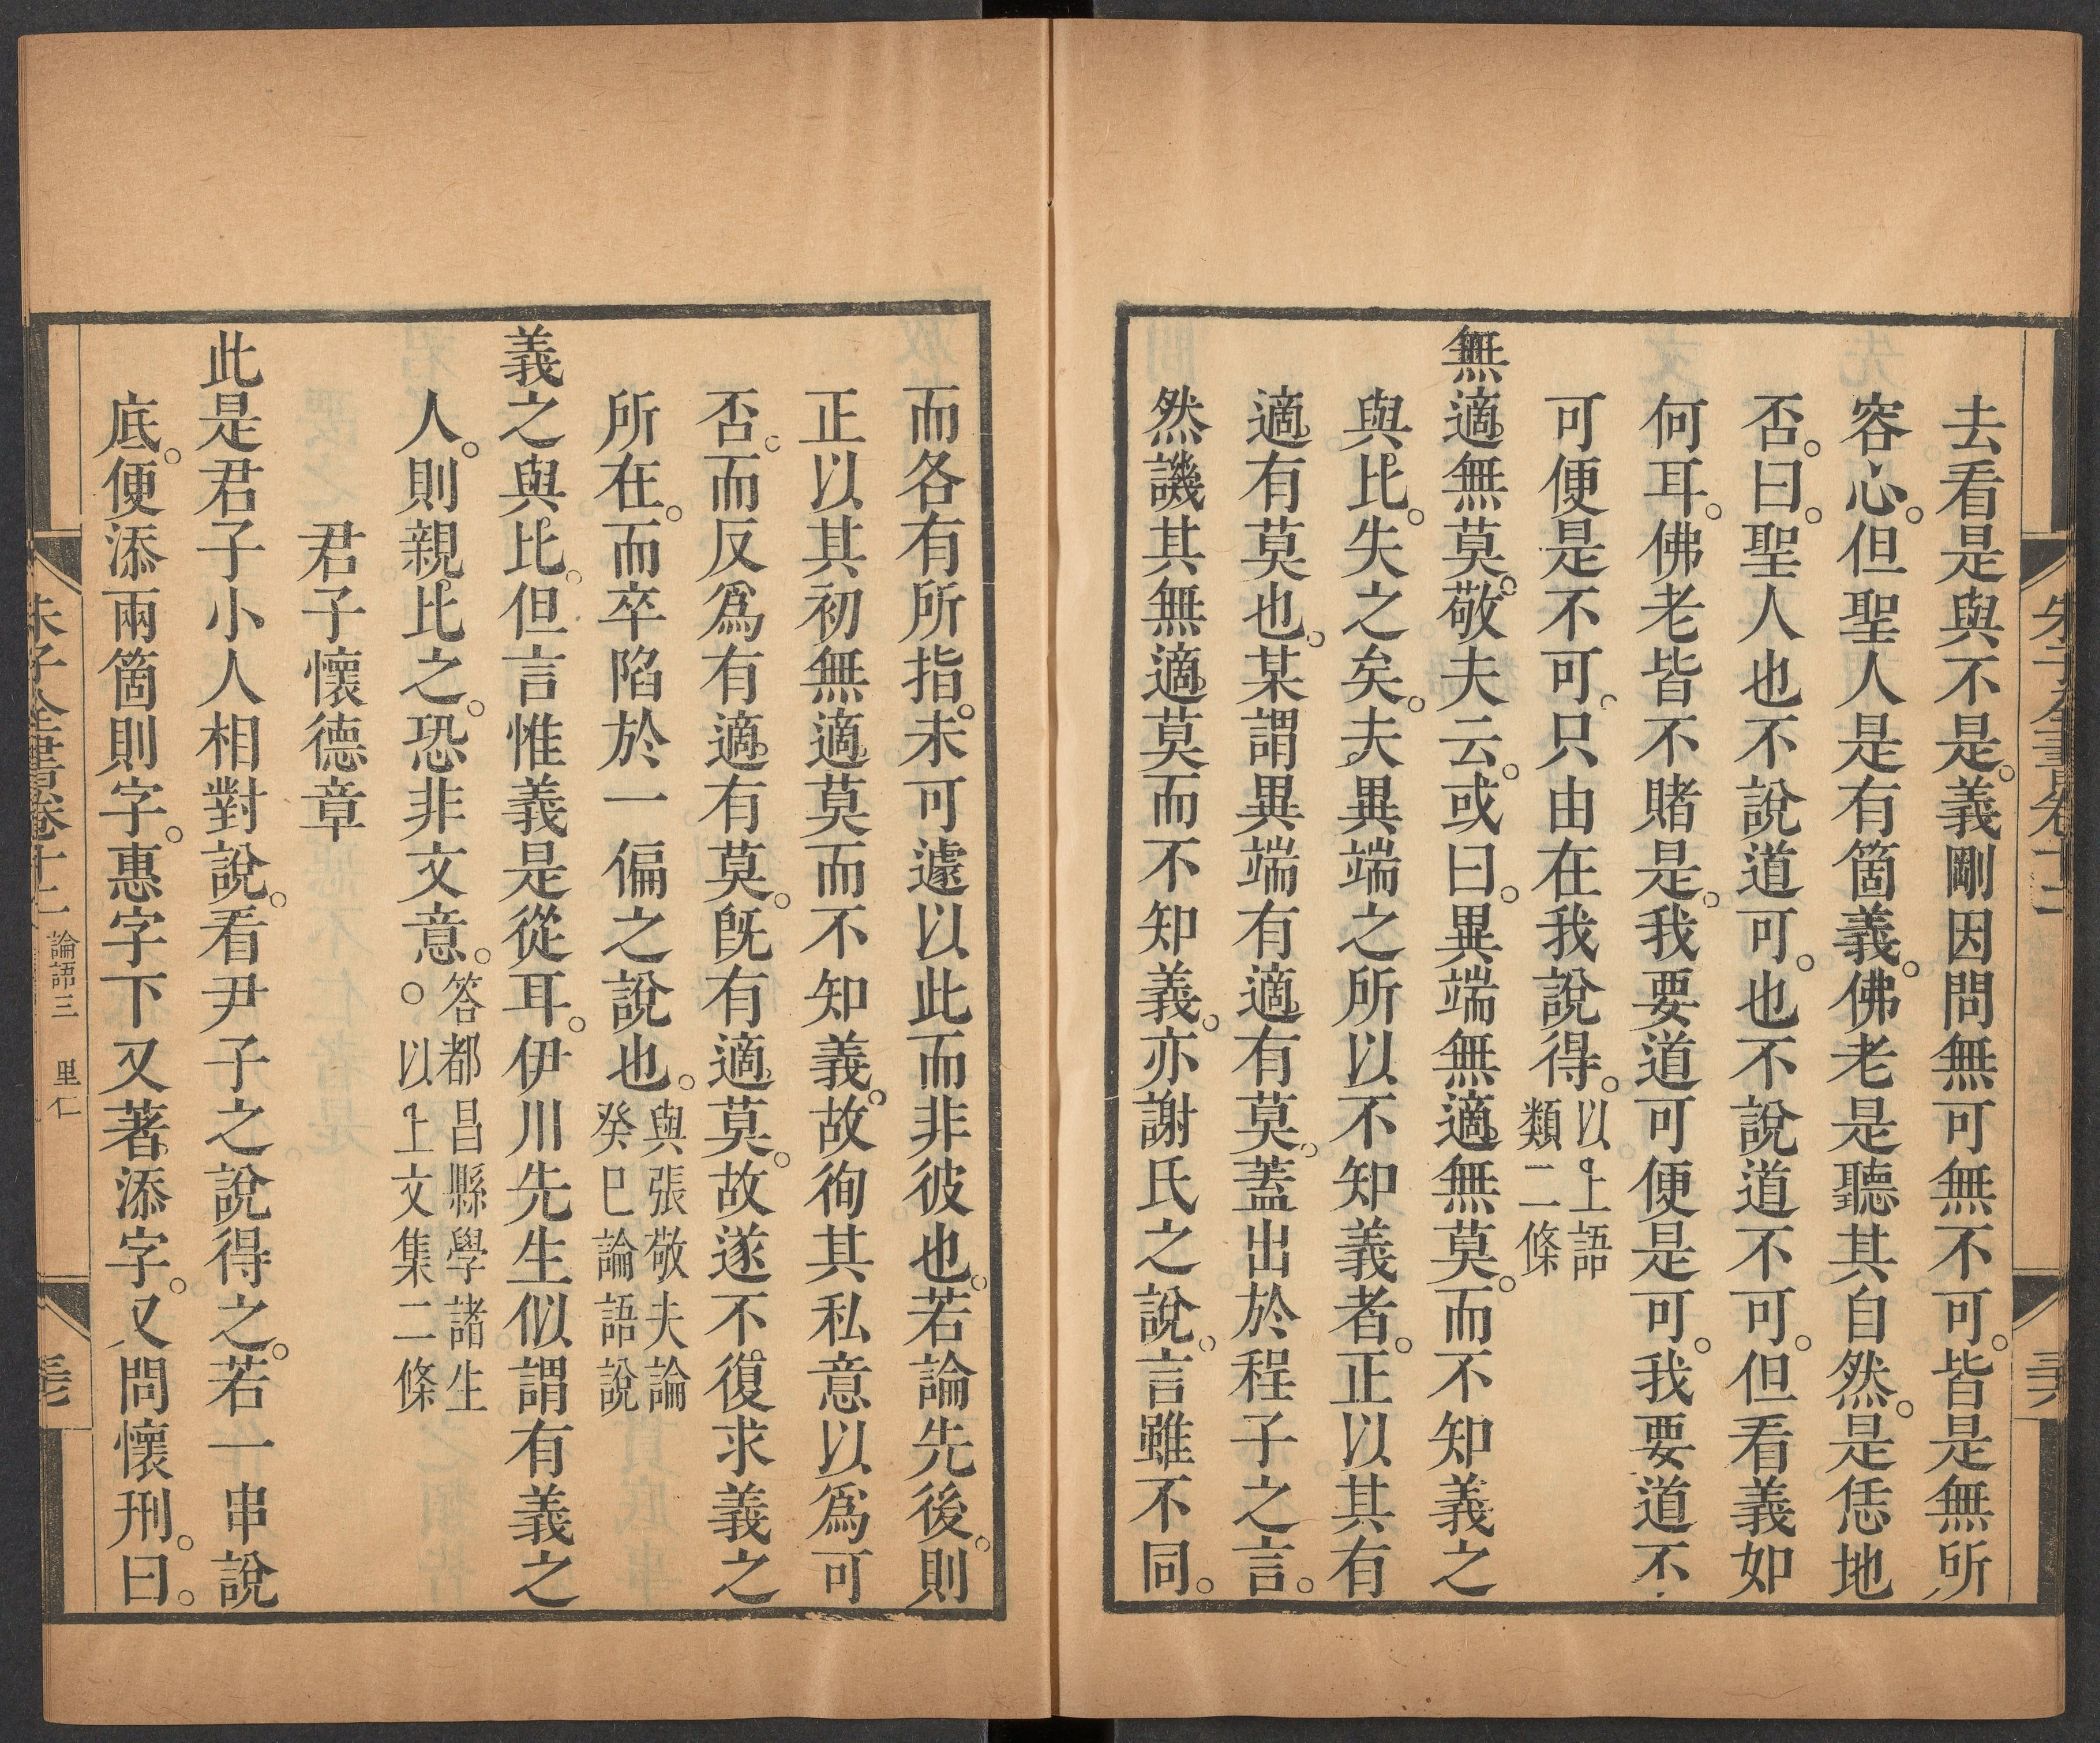 去看是與不是。義剛因問無可無不可。皆是無所
容心。但聖人是有箇義。佛老是聽其自然。是恁地
否。曰。聖人也不說道可。也不說道不可。但看義如
何耳。佛老皆不睹是。我要道可便是可。我要道不
可便是不可。只由在我說得。以上語
類二條
無適無莫。敬夫云。或曰。異端無適無莫。而不知義之
與比。失之矣。夫異端之所以不知義者。正以其有
適有莫也。某謂異端有適有莫。蓋出於程子之言。
然譏其無適莫而不知義。亦謝氏之說。言雖不同。
而各有所指。未可遽以此而非彼也。若論先後。則
正以其初無適莫而不知義。故徇其私意以爲可
否。而反爲有適有莫。旣有適莫。故遂不復求義之
所在。而卒陷於一偏之說也。與張敬夫論
癸巳論語說
義之與比。但言惟義是從耳。伊川先生似謂有義之
人。則親比之。恐非文意。答都昌縣學諸生
○以上文集二條
君子懷德章
此是君子小人相對說。看尹子之說得之。若一串說
底。便添兩箇則字。惠字下又著添字。又問懷刑。曰。
朱子全書卷十二 論語三 里仁